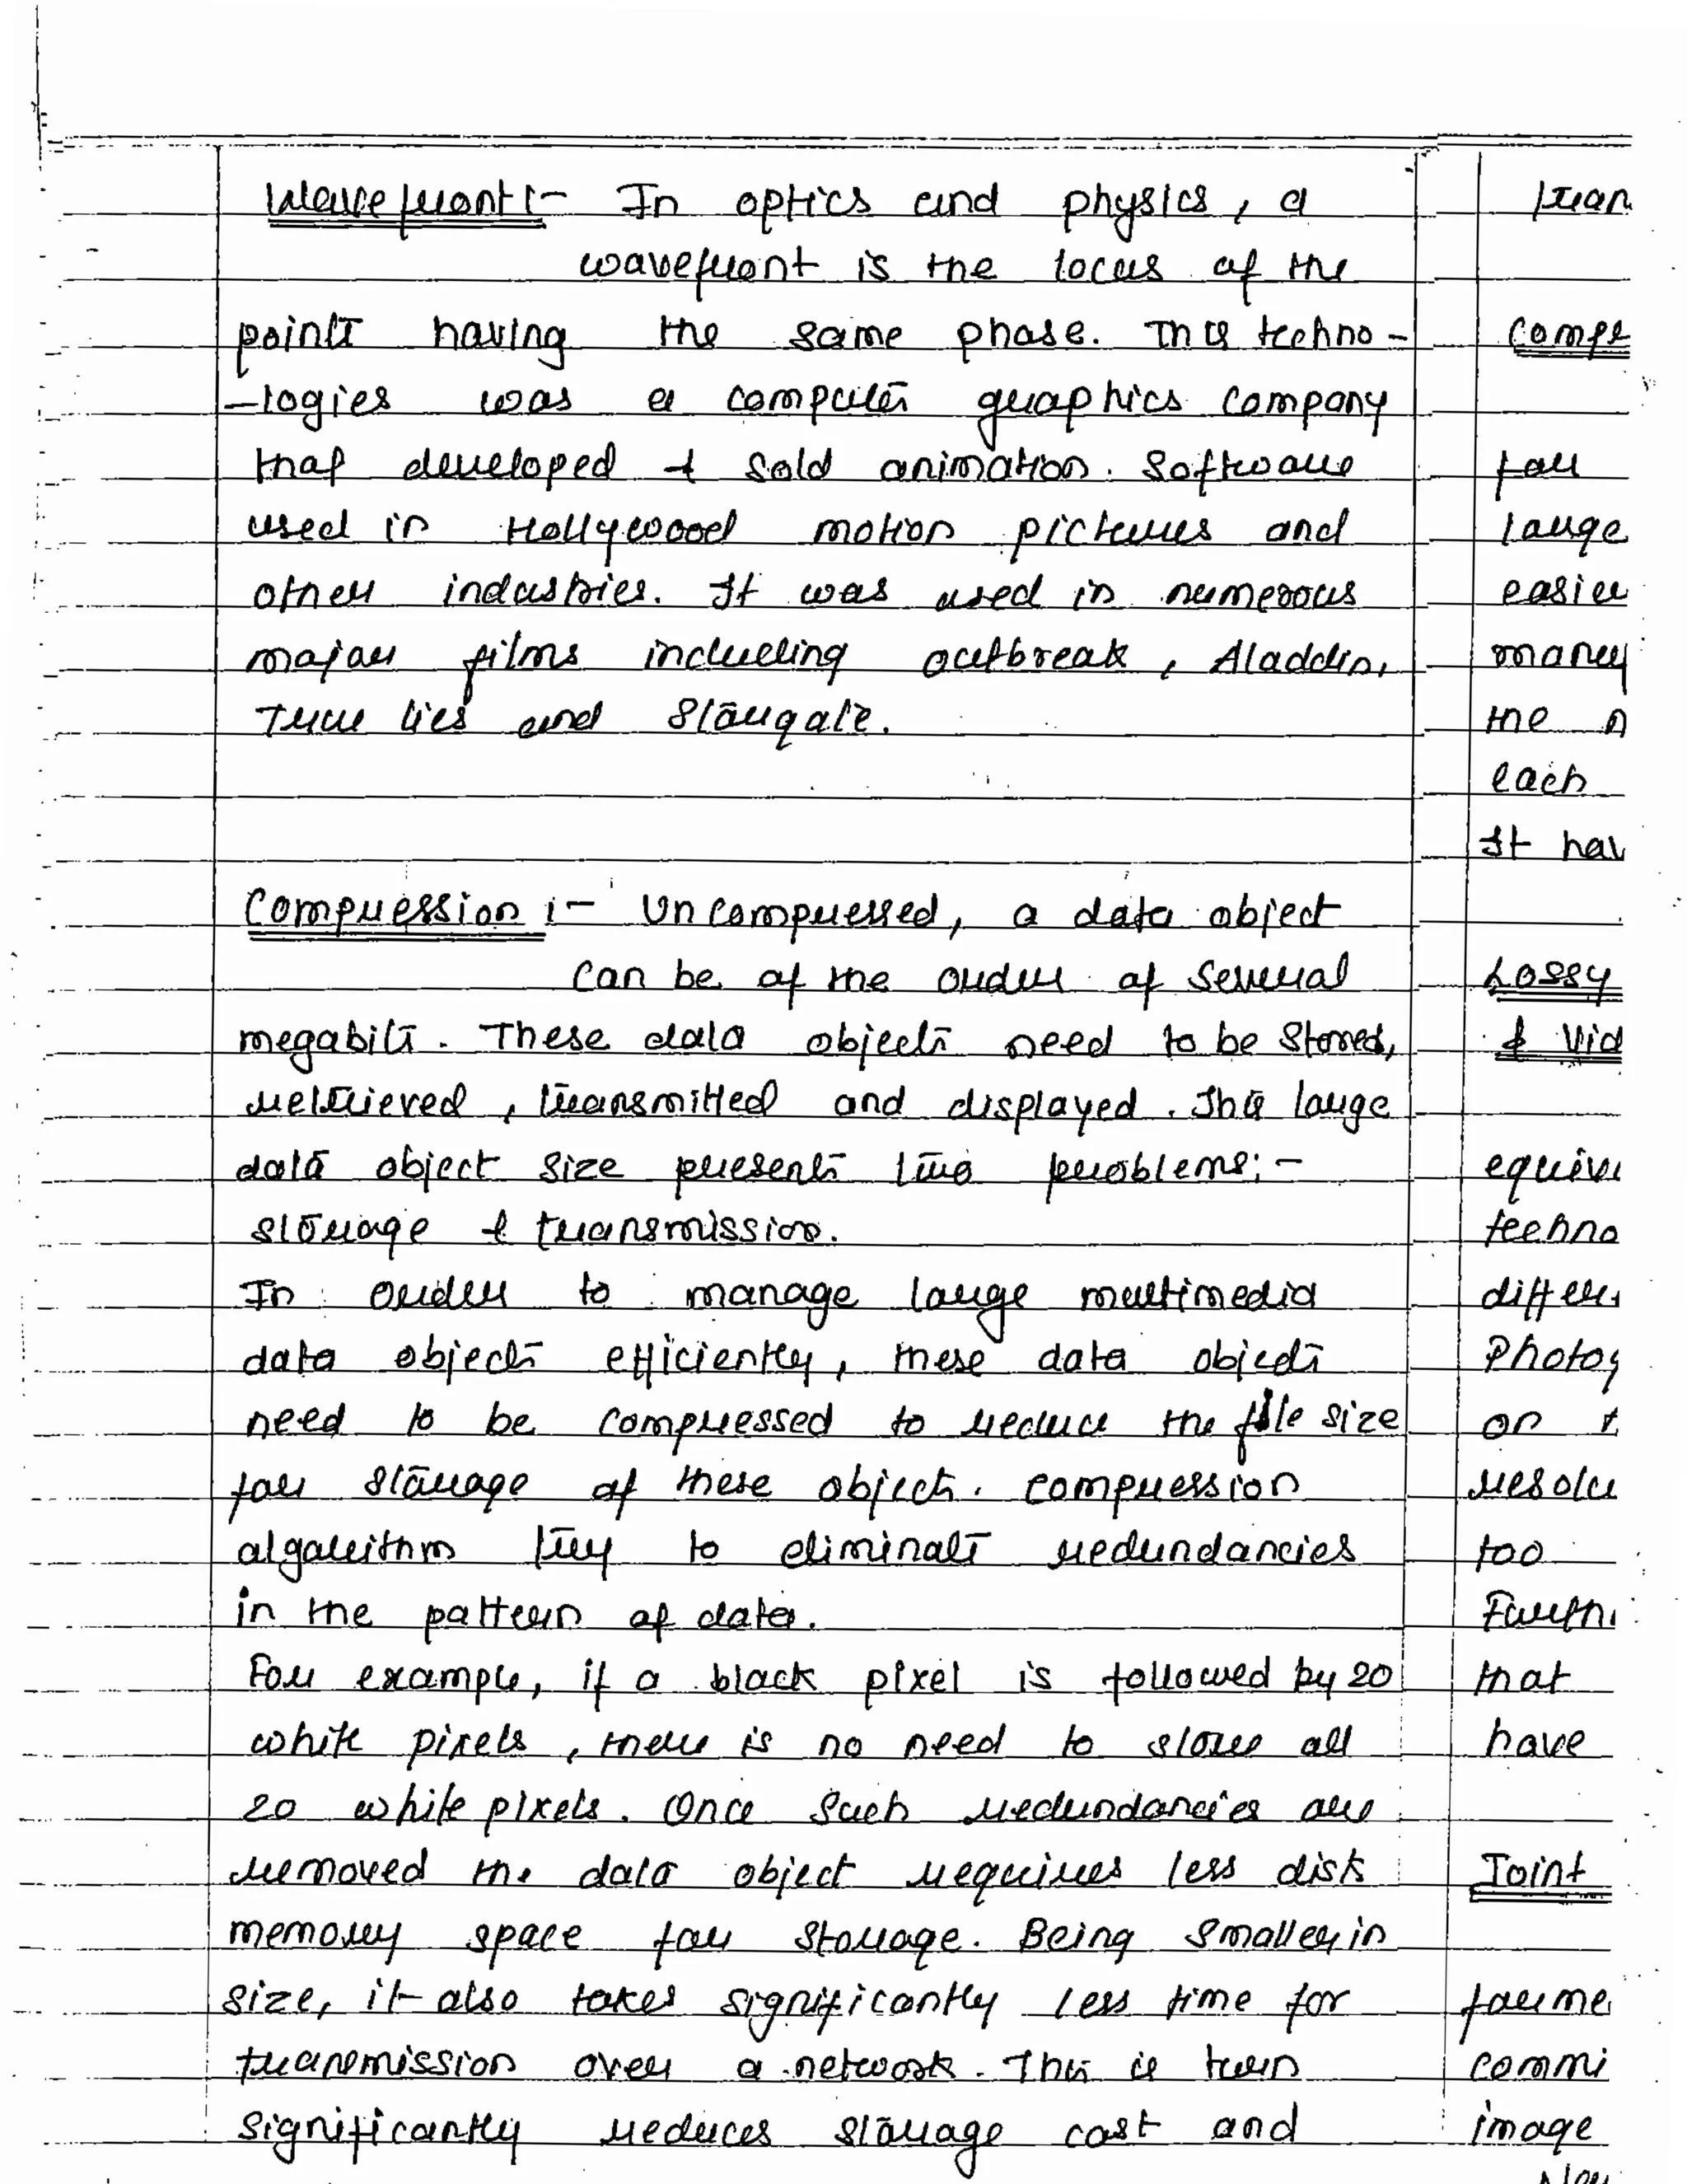 Wavefront :- In optics and physics, a
wavefront is the locus of the
points having the same phase. This techno-
-logies was a computer graphics company
that developed & sold animation. Software
used in Hollywood motion pictures and
other industries. It was used in numerous
major films including outbreak, Aladdin,
True lies and Stargate.
Compression :- Uncompressed, a data object
can be of the order of several
megabits. These data objects need to be stored,
retrieved, transmitted and displayed. This large
data object size presents two problems:-
storage & transmission.
In order to manage large multimedia
data objects efficiently, these data objects
need to be compressed to reduce the file size
for storage of these objects. compression
algorithm try to eliminate redundancies
in the pattern of data.
For example, if a black pixel is followed by 20
white pixels, there is no need to store all
20 white pixels. Once such redundancies are
removed the data object requires less disk
memory space for storage. Being smaller in
size, it also takes significantly less time for
transmission over a network. This is turn
significantly reduces storage cost and
tran
Comp
for
large
easier
many
the
each
It hav
Lossy
& Vid
equiv
techno
differ
Photog
on
resolu
too
Furth
that
have
Joint
forme
commi
image